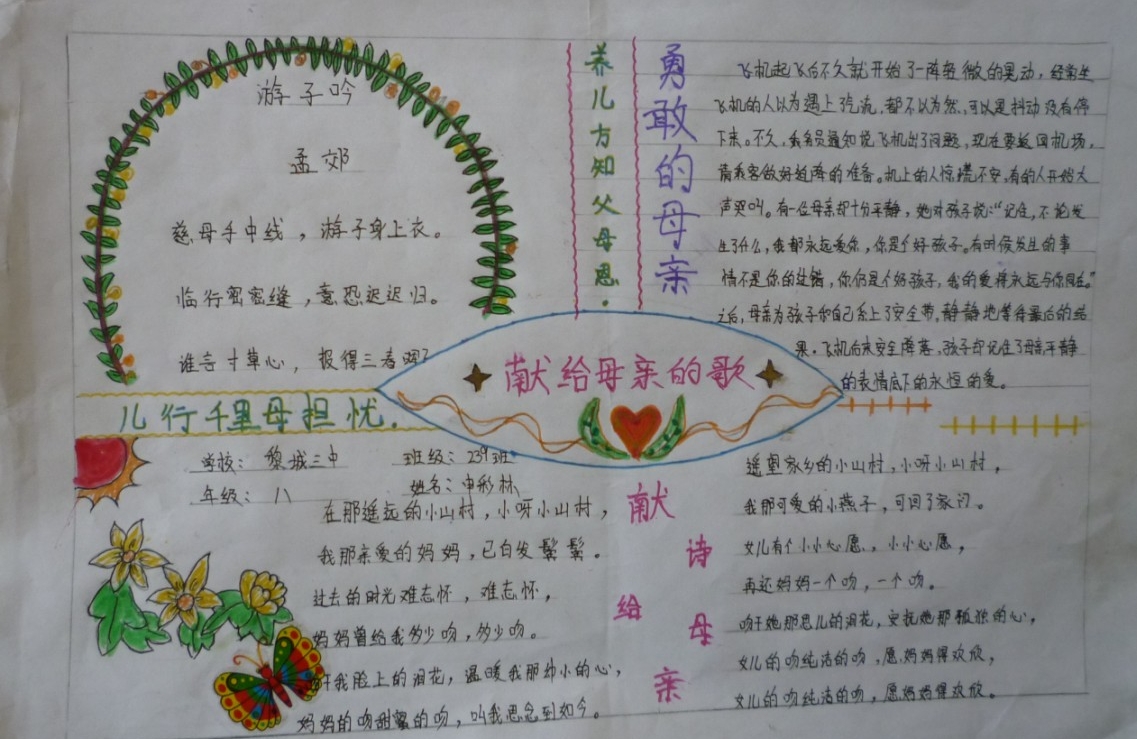 游子吟
孟郊
慈母手中线，游子身上衣。
临行密密缝，意恐迟迟归。
谁言寸草心，报得三春晖？
儿行千里母担忧.
养儿方知父母恩.
勇敢的母亲
飞机起飞后不久就开始了一阵轻微的晃动，经常坐
飞机的人以为遇上汽流，都不以为然，可以是抖动没有停
下来。不久，乘务员通知说飞机出了问题，现在要返回机场，
请乘客做好迫降的准备。机上的人惊慌不安，有的人开始大
声哭叫。有一位母亲却十分平静，她对孩子说：“记住，不论发
生了什么，我都永远爱你，你是个好孩子。有时候发生的事
情不是你的过错，你仍是个好孩子，我的爱将永远与你同在。”
之后，母亲为孩子和自己系上了安全带，静静地等待最后的结
果。飞机后来安全降落，孩子却记住了母亲平静
的表情底下的永恒的爱。
献给母亲的歌
学校：黎城三中 班级：239班
年级：八 姓名：申彩林
在那遥远的小山村，小呀小山村，
我那亲爱的妈妈，已白发鬓鬓。
过去的时光难忘怀，难忘怀，
妈妈曾给我多少吻，多少吻。
吻干我脸上的泪花，温暖我那幼小的心，
妈妈的吻甜蜜的吻，叫我思念到如今。
献诗给母亲
遥望家乡的小山村，小呀小山村，
我那可爱的小燕子，可回了家门。
女儿有个小小心愿，小小心愿，
再还妈妈一个吻，一个吻。
吻干她那思儿的泪花，安抚她那孤独的心，
女儿的吻纯洁的吻，愿妈妈得欢欣，
女儿的吻纯洁的吻，愿妈妈得欢欣。